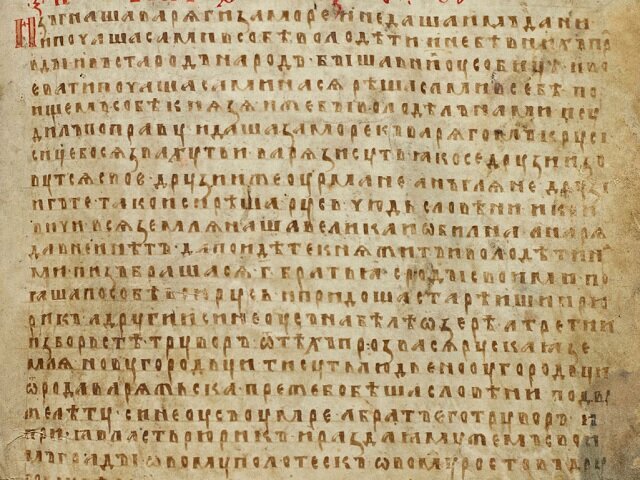 изъгнаша варѧги за море и не даша имъ дани
и почаша сами в собѣ володѣти и не бѣ в нихъ пр
вды и въста родъ на родъ · быша в них усобицѣ и во
евати почаша сами на сѧ рѣша сами в себѣ по
ищемъ собѣ кнѧзѧ иже бы володѣлъ нами и сѹ
дилъ по правѹ идаша за море къ варѧгомъ к русі
сице бо сѧ звахуть и варѧзи суть ꙗко се друзии зо
вутсѧ свое · друзии же оурмане · анъглѧне · друзі
и гъте · тако и си рѣша · русь · чюдь словѣни и кри
вичи всѧ землѧ наша велика и обилна · а нарѧ
да в неи нѣтъ · да поидѣте кнѧжитъ и володѣти на
ми · и избрашасѧ · г҃ братьꙗ с роды своими · и по
ꙗша по собѣ всю русь · и придоша старѣишии рю
рикъ · а другии синеоусъ на бѣлѣѡзерѣ · а третии
изборьстѣ труворъ · ѿ тѣхъ прозвасѧ рускаꙗ зе
млѧ новугородьци ти суть людье ноугородьци
ѿ рода варѧжьска преже бо бѣша словѣни · по дву
же лѣту · синеоусъ оумре а братъ его труворъ · и
приꙗ власть рюрикъ и раздаꙗ мужемъ свои
мъ грады ѡвому полотескъ ѡвому ростовъ дру